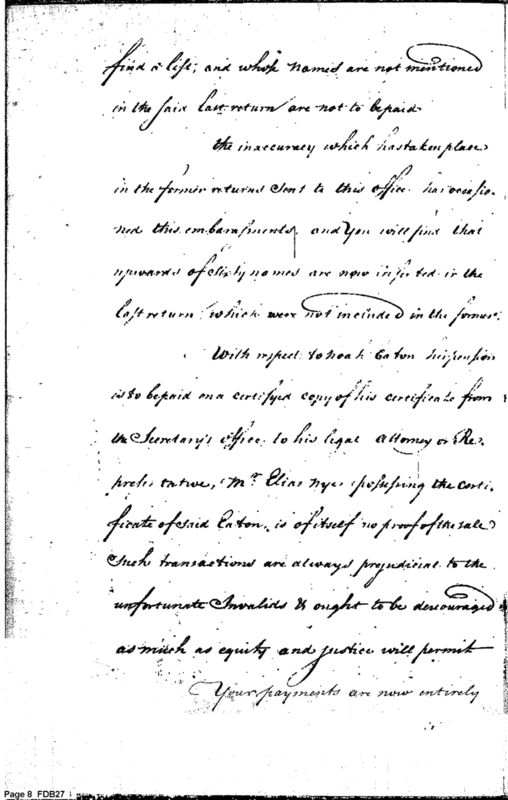 find a list; and whose names are not mentioned
in the said last return are not to be paid
the inaccuracy which has taken place
in the former returns sent to this office has occasio-
ned this embarassments, and You will find that
upwards of sixty names are now inserted in the
last return which were not included in the former.
With respect to Noah Eaton his pension
is to be paid on a certifyed copy of his certificate from
the Secretary's office to his legal Attorney or Re-
presentative, Mr. Elias Nye possessing the certi-
ficate of said Eaton, is of itself no proof of the sale
Such transactions are always prejudicial to the
unfortunate Invalids & ought to be descouraged
as much as equity and justice will permit
Your payments are now entirely
Page 8 FDB27